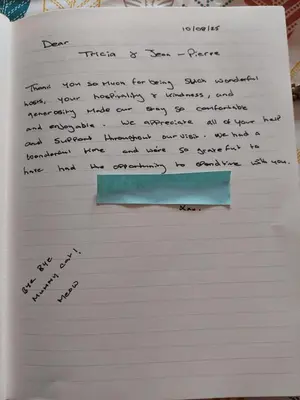 10/08/25
Dear
Tricia & Jean - Pierre
Thank you so much for being such wonderful
hosts, your hospitality & kindness, and
generosity made our stay so comfortable
and enjoyable. We appreciate all of your help
and support throughout our visit. We had a
wonderful time and we're so grateful to
have had the opportunity to spend time with you.
Bye Bye
Mummy Cat!
Meow